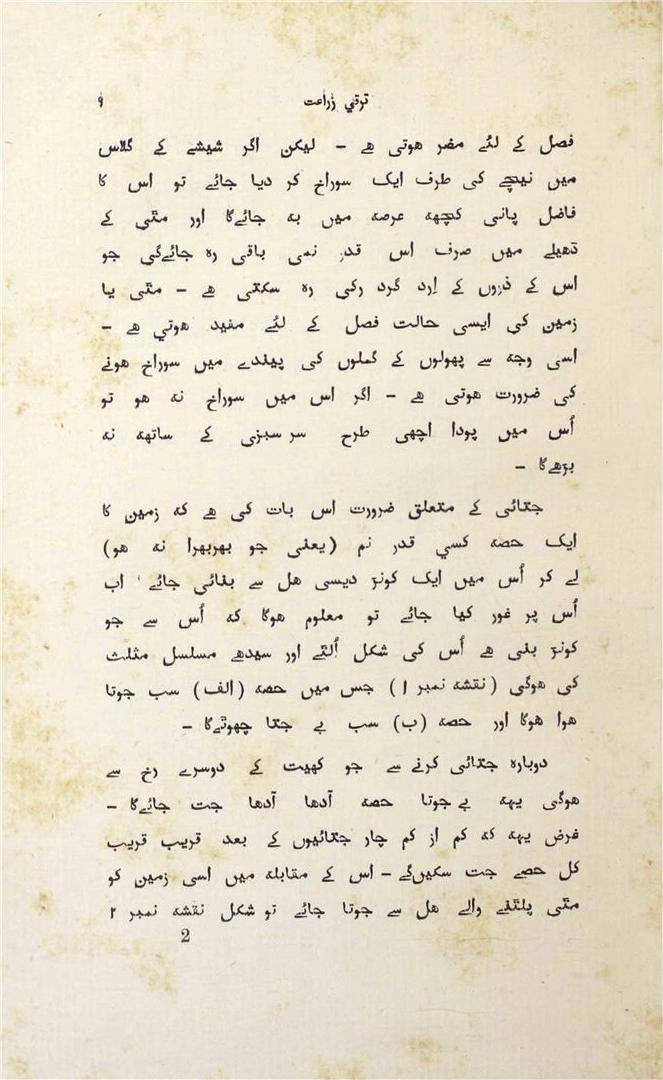 ترقي زراعت ۹
فصل کے لئے مضر ھوتی ھے – لیکن اگر شیشے کے گلاس
میں نیچے کی طرف ایک سوراخ کر دیا جائے تو اس کا
فاضل پانی کچھہ عرصہ میں بہ جائےگا اور مٹی کے
ڈھیلے میں صرف اس قدر نمی باقی رہ جائےگی جو
اس کے ذروں کے اِرد گرد رکی رہ سکتی ھے – مٹی یا
زمین کی ایسی حالت فصل کے لئے مفید ھوتي ھے –
اسی وجہ سے پھولوں کے گملوں کی پیندے میں سوراخ ھونے
کی ضرورت ھوتی ھے – اگر اس میں سوراخ نہ ھو تو
اُس میں پودا اچھی طرح سر سبزی کے ساتھہ نہ
بڑھےگا –
جتائی کے متعلق ضرورت اس بات کی ھے کہ زمین کا
ایک حصہ کسي قدر نم (یعنی جو بھربھرا نہ ھو)
لے کر اُس میں ایک کونڑ دیسی ھل سے بنائی جائے ' اب
اُس پر غور کیا جائے تو معلوم ھوگا کہ اُس سے جو
کونڑ بنی ھے اُس کی شکل اُلٹے اور سیدھے مسلسل مثلث
کی ھوگی (نقشہ نمبر ۱) جس میں حصہ (الف) سب جوتا
ھوا ھوگا اور حصہ (ب) سب بے جتا چھوٹےگا –
دوبارہ جتائی کرنے سے جو کھیت کے دوسرے رخ سے
ھوگی یہہ بےجوتا حصہ آدھا آدھا جت جائےگا –
غرض یہہ کہ کم از کم چار جتائیوں کے بعد قریب قریب
کل حصے جت سکیںگے – اس کے مقابلہ میں اسی زمین کو
مٹی پلٹنے والے ھل سے جوتا جائے تو شکل نقشہ نمبر ۲
2